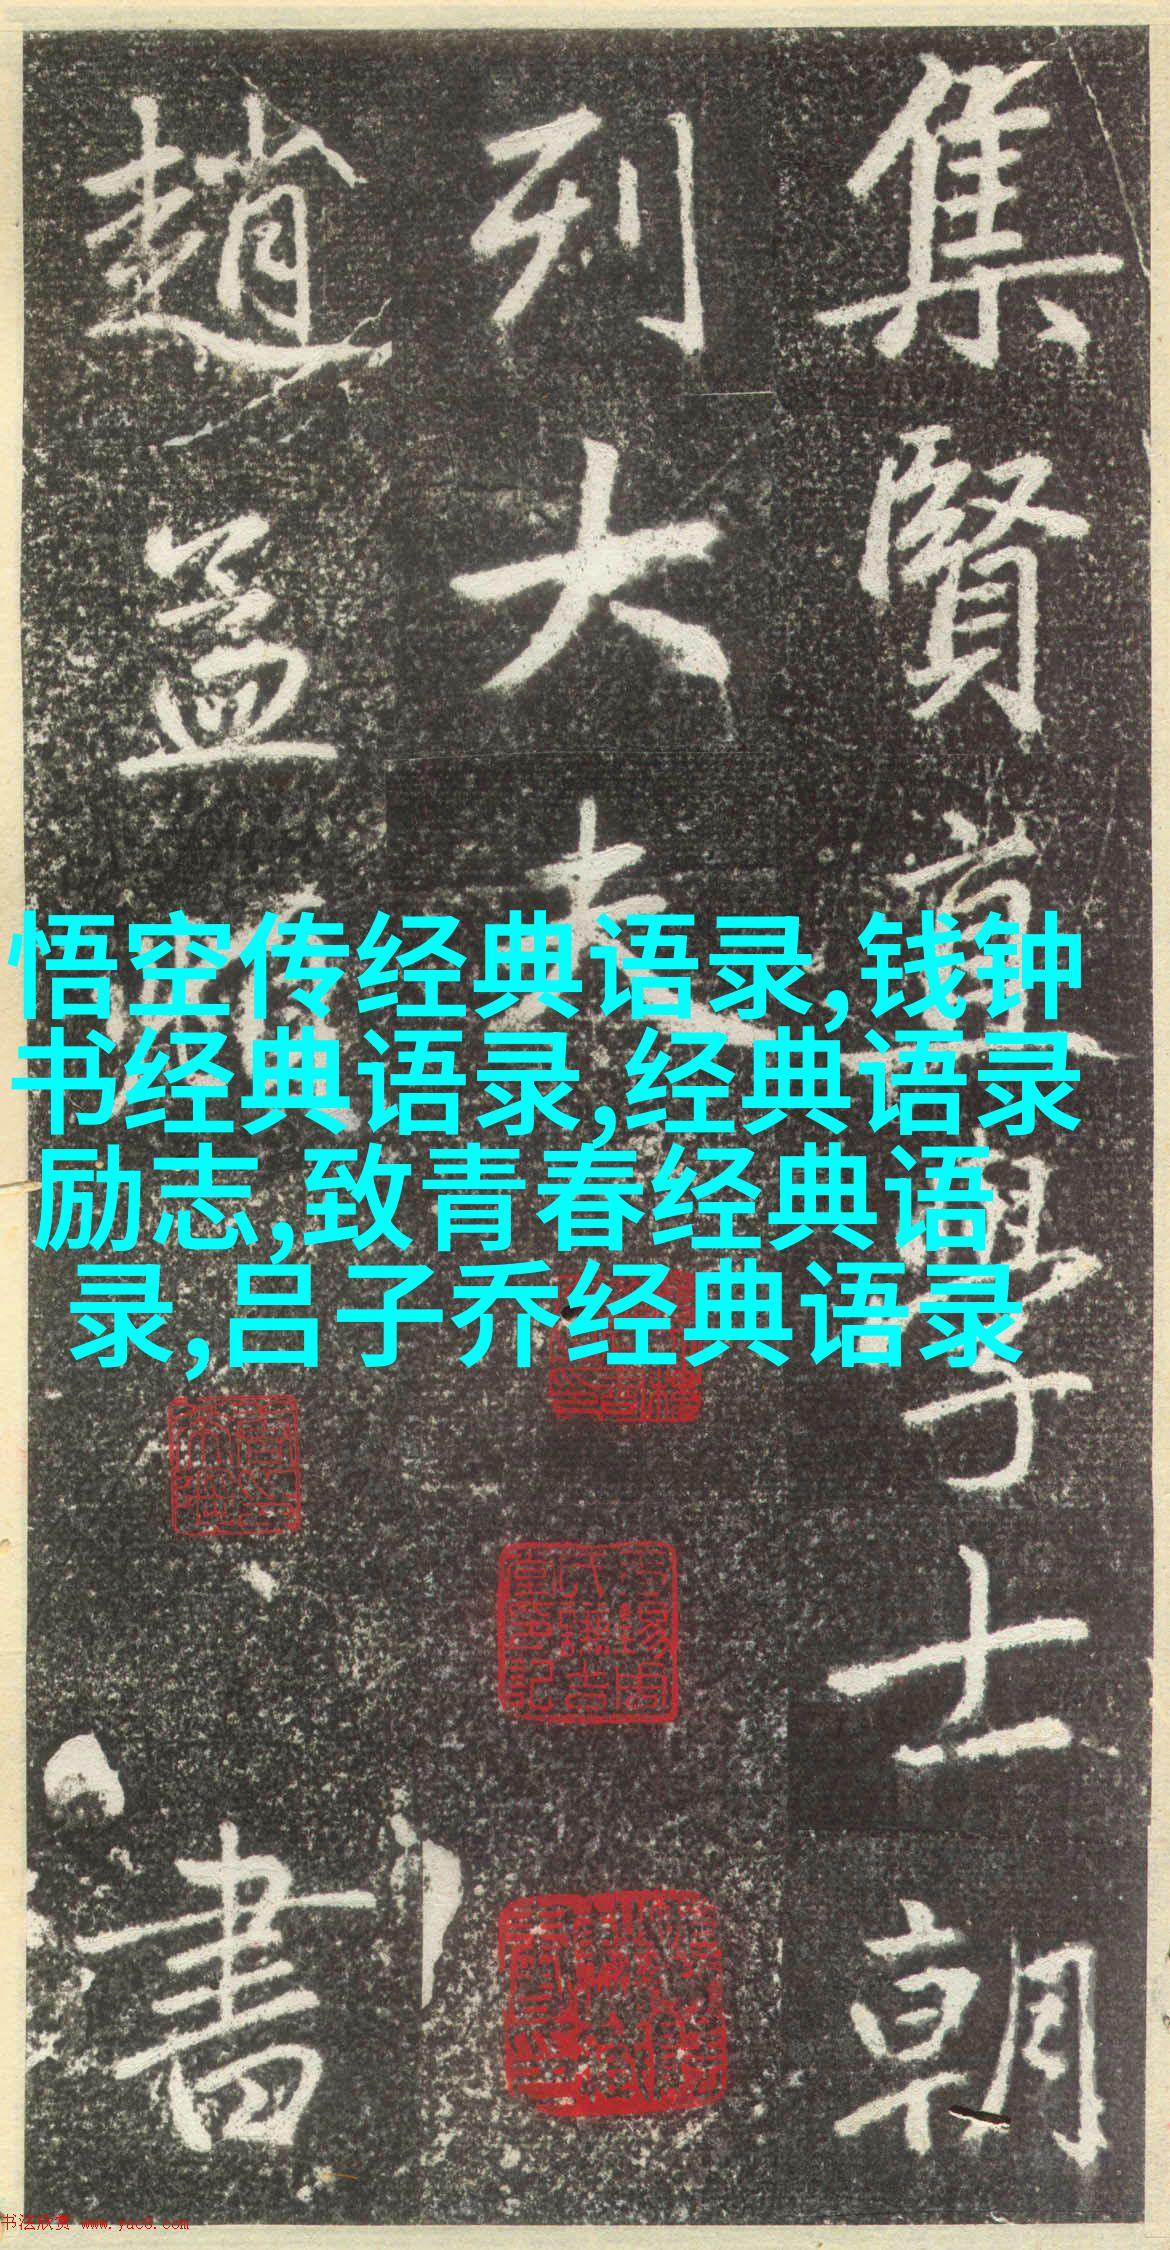 集賢直學士朝
列大夫
趙孟頫
書
悟空传经典语录,钱钟
书经典语录,经典语录
励志,致青春经典语
录,吕子乔经典语录
书法欣赏 www.yac8.com